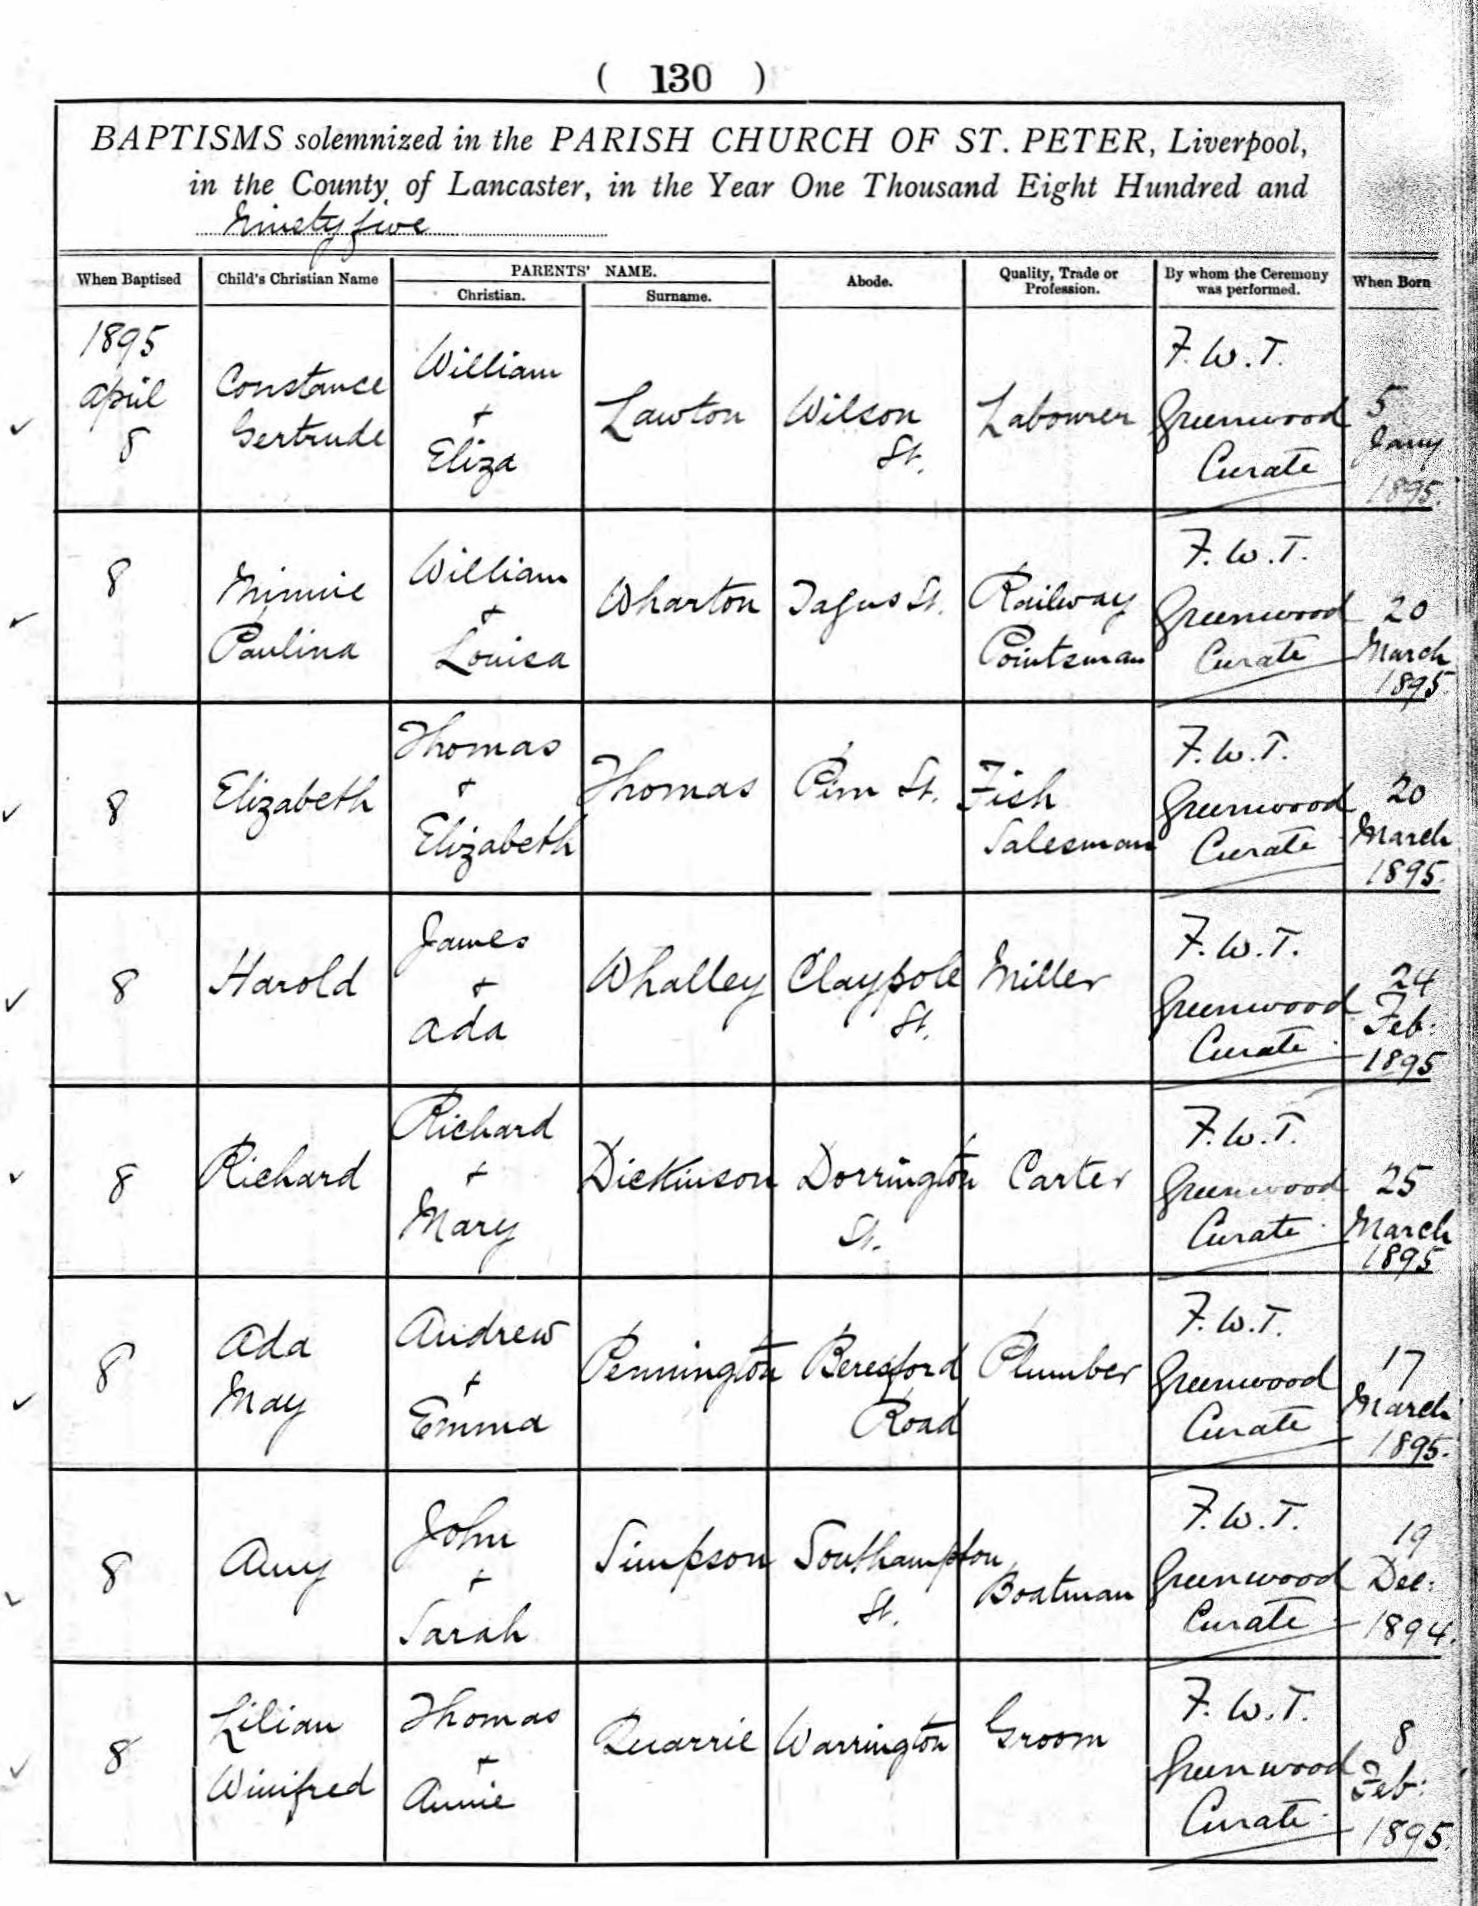 ( 130 )
BAPTISMS solemnized in the PARISH CHURCH OF ST. PETER, Liverpool,
in the County of Lancaster, in the Year One Thousand Eight Hundred and
Ninety five
When Baptised
Child's Christian Name
PARENTS' NAME.
Christian.
Surname.
Abode.
Quality, Trade or
Profession.
By whom the Ceremony
was performed.
When Born
1895
April
8
Constance
Gertrude
William
+
Eliza
Lawton
Wilson
St.
Labourer
F. W. T.
Greenwood
Curate
5
Jany
1895.
8
Minnie
Paulina
William
+
Louisa
Wharton
Tagus St.
Railway
Pointsman
F. W. T.
Greenwood
Curate
20
March
1895.
8
Elizabeth
Thomas
+
Elizabeth
Thomas
Pim St.
Fish
Salesman
F. W. T.
Greenwood
Curate
20
March
1895.
8
Harold
James
+
Ada
Whalley
Claypole
St.
Miller
F. W. T.
Greenwood
Curate
24
Feb.
1895
8
Richard
Richard
+
Mary
Dickinson
Dorrington
St.
Carter
F. W. T.
Greenwood
Curate
25
March
1895
8
Ada
May
Andrew
+
Emma
Pennington
Beresford
Road
Plumber
F. W. T.
Greenwood
Curate
17
March
1895.
8
Amy
John
+
Sarah
Simpson
Southampton
St.
Boatman
F. W. T.
Greenwood
Curate
19
Dec.
1894.
8
Lilian
Winifred
Thomas
+
Annie
Quarrie
Warrington
Groom
F. W. T.
Greenwood
Curate
8
Feb.
1895.